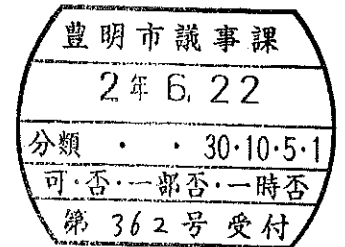 豊明市議事課
2年 6. 22
分類 ・ ・ 30・10・5・1
可・否・一部否・一時否
第 362号 受付